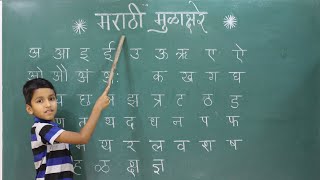 मराठी मुळाक्षरे
अ आ इ ई उ ऊ ऋ ए ऐ
ओ औ अं अः क ख ग घ
छ ज झ ञ ट ठ ड
ण त थ द ध न प फ
म य र ल व श ष
ह ळ क्ष ज्ञ